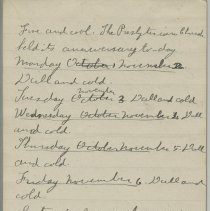 Fine and cool. The Presbyterian Church
held its anniversary to-day
Monday October November 2
Dull and cold
November
Tuesday October 3 Dull and cold
Wednesday October November 4 Dull
and cold.
Thursday October November 5 Dull
and cold.
Friday November 6 Dull and
cold.